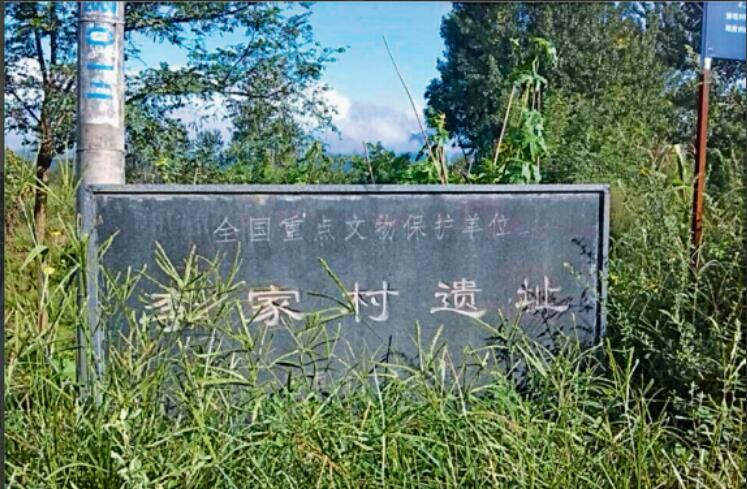 全国重点文物保护单位
李家村遗址